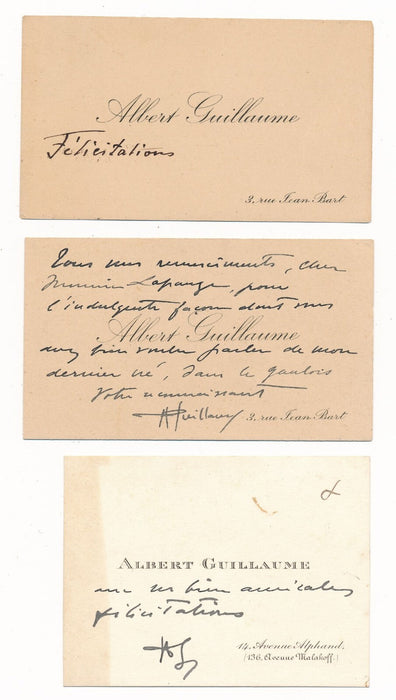 Albert Guillaume
Félicitations
3, rue Jean Bart
Tous mes remerciements, cher
Monsieur Lapauze, pour
l'indulgente façon dont vous
Albert Guillaume
avez bien voulu parler de mon
dernier né, dans le Gaulois
Votre reconnaissant
AGuillaume 3, rue Jean Bart
ALBERT GUILLAUME
avec ses bien amicales
félicitations
14, Avenue Alphand.
(136, Avenue Malakoff.)